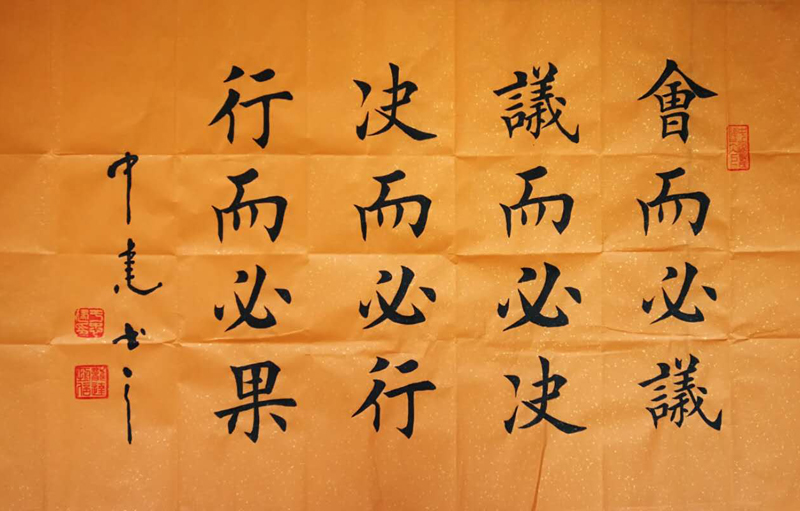 會而必議
議而必决
决而必行
行而必果
中建书之